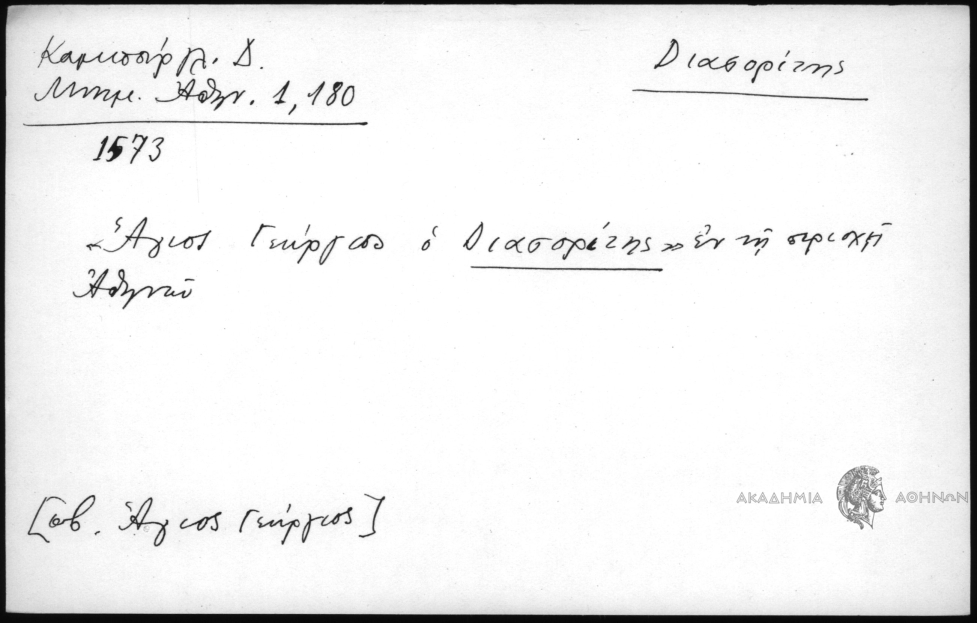 Καμπούρογλ. Δ.
Μνημ. Ἀθην. 1,180
Διασορίτης
1573
«Ἅγιος Γεώργιος ὁ Διασορίτης» ἐν τῇ περιοχῇ
Ἀθηνῶν
[πβ. Ἅγιος Γεώργιος]
ΑΚΑΔΗΜΙΑ ΑΘΗΝΩΝ